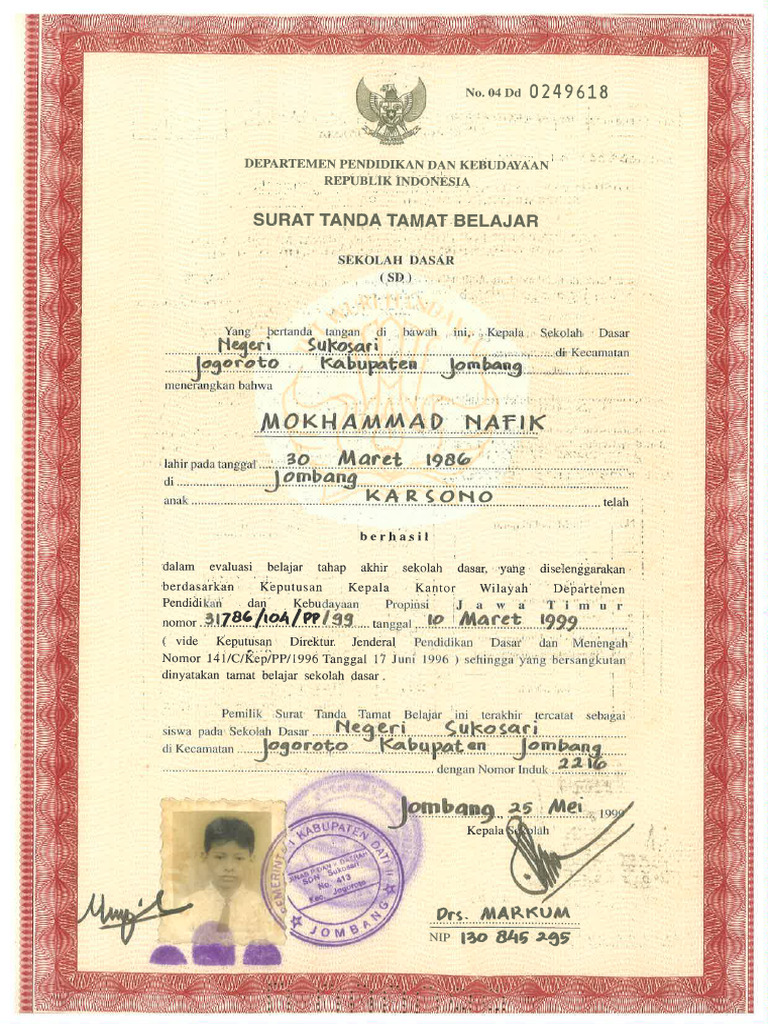 No. 04 Dd 0249618
DEPARTEMEN PENDIDIKAN DAN KEBUDAYAAN
REPUBLIK INDONESIA
SURAT TANDA TAMAT BELAJAR
SEKOLAH DASAR
( SD )
Yang bertanda tangan di bawah ini, Kepala Sekolah Dasar
Negeri Sukosari di Kecamatan
Jogoroto Kabupaten Jombang
menerangkan bahwa
MOKHAMMAD NAFIK
lahir pada tanggal 30 Maret 1986
di Jombang
anak KARSONO telah
berhasil
dalam evaluasi belajar tahap akhir sekolah dasar, yang diselenggarakan
berdasarkan Keputusan Kepala Kantor Wilayah Departemen
Pendidikan dan Kebudayaan Propinsi Jawa Timur
nomor 31786/104/PP/99 tanggal 10 Maret 1999
( vide Keputusan Direktur Jenderal Pendidikan Dasar dan Menengah
Nomor 141/C/Kep/PP/1996 Tanggal 17 Juni 1996 ) sehingga yang bersangkutan
dinyatakan tamat belajar sekolah dasar .
Pemilik Surat Tanda Tamat Belajar ini terakhir tercatat sebagai
siswa pada Sekolah Dasar Negeri Sukosari
di Kecamatan Jogoroto Kabupaten Jombang
dengan Nomor Induk 2216
Jombang, 25 Mei 1999
Kepala Sekolah
PEMERINTAH KABUPATEN DATI II
SDN Sukosari
No. 413
Kec. Jogoroto
JOMBANG
Drs. MARKUM
NIP 130 845 295